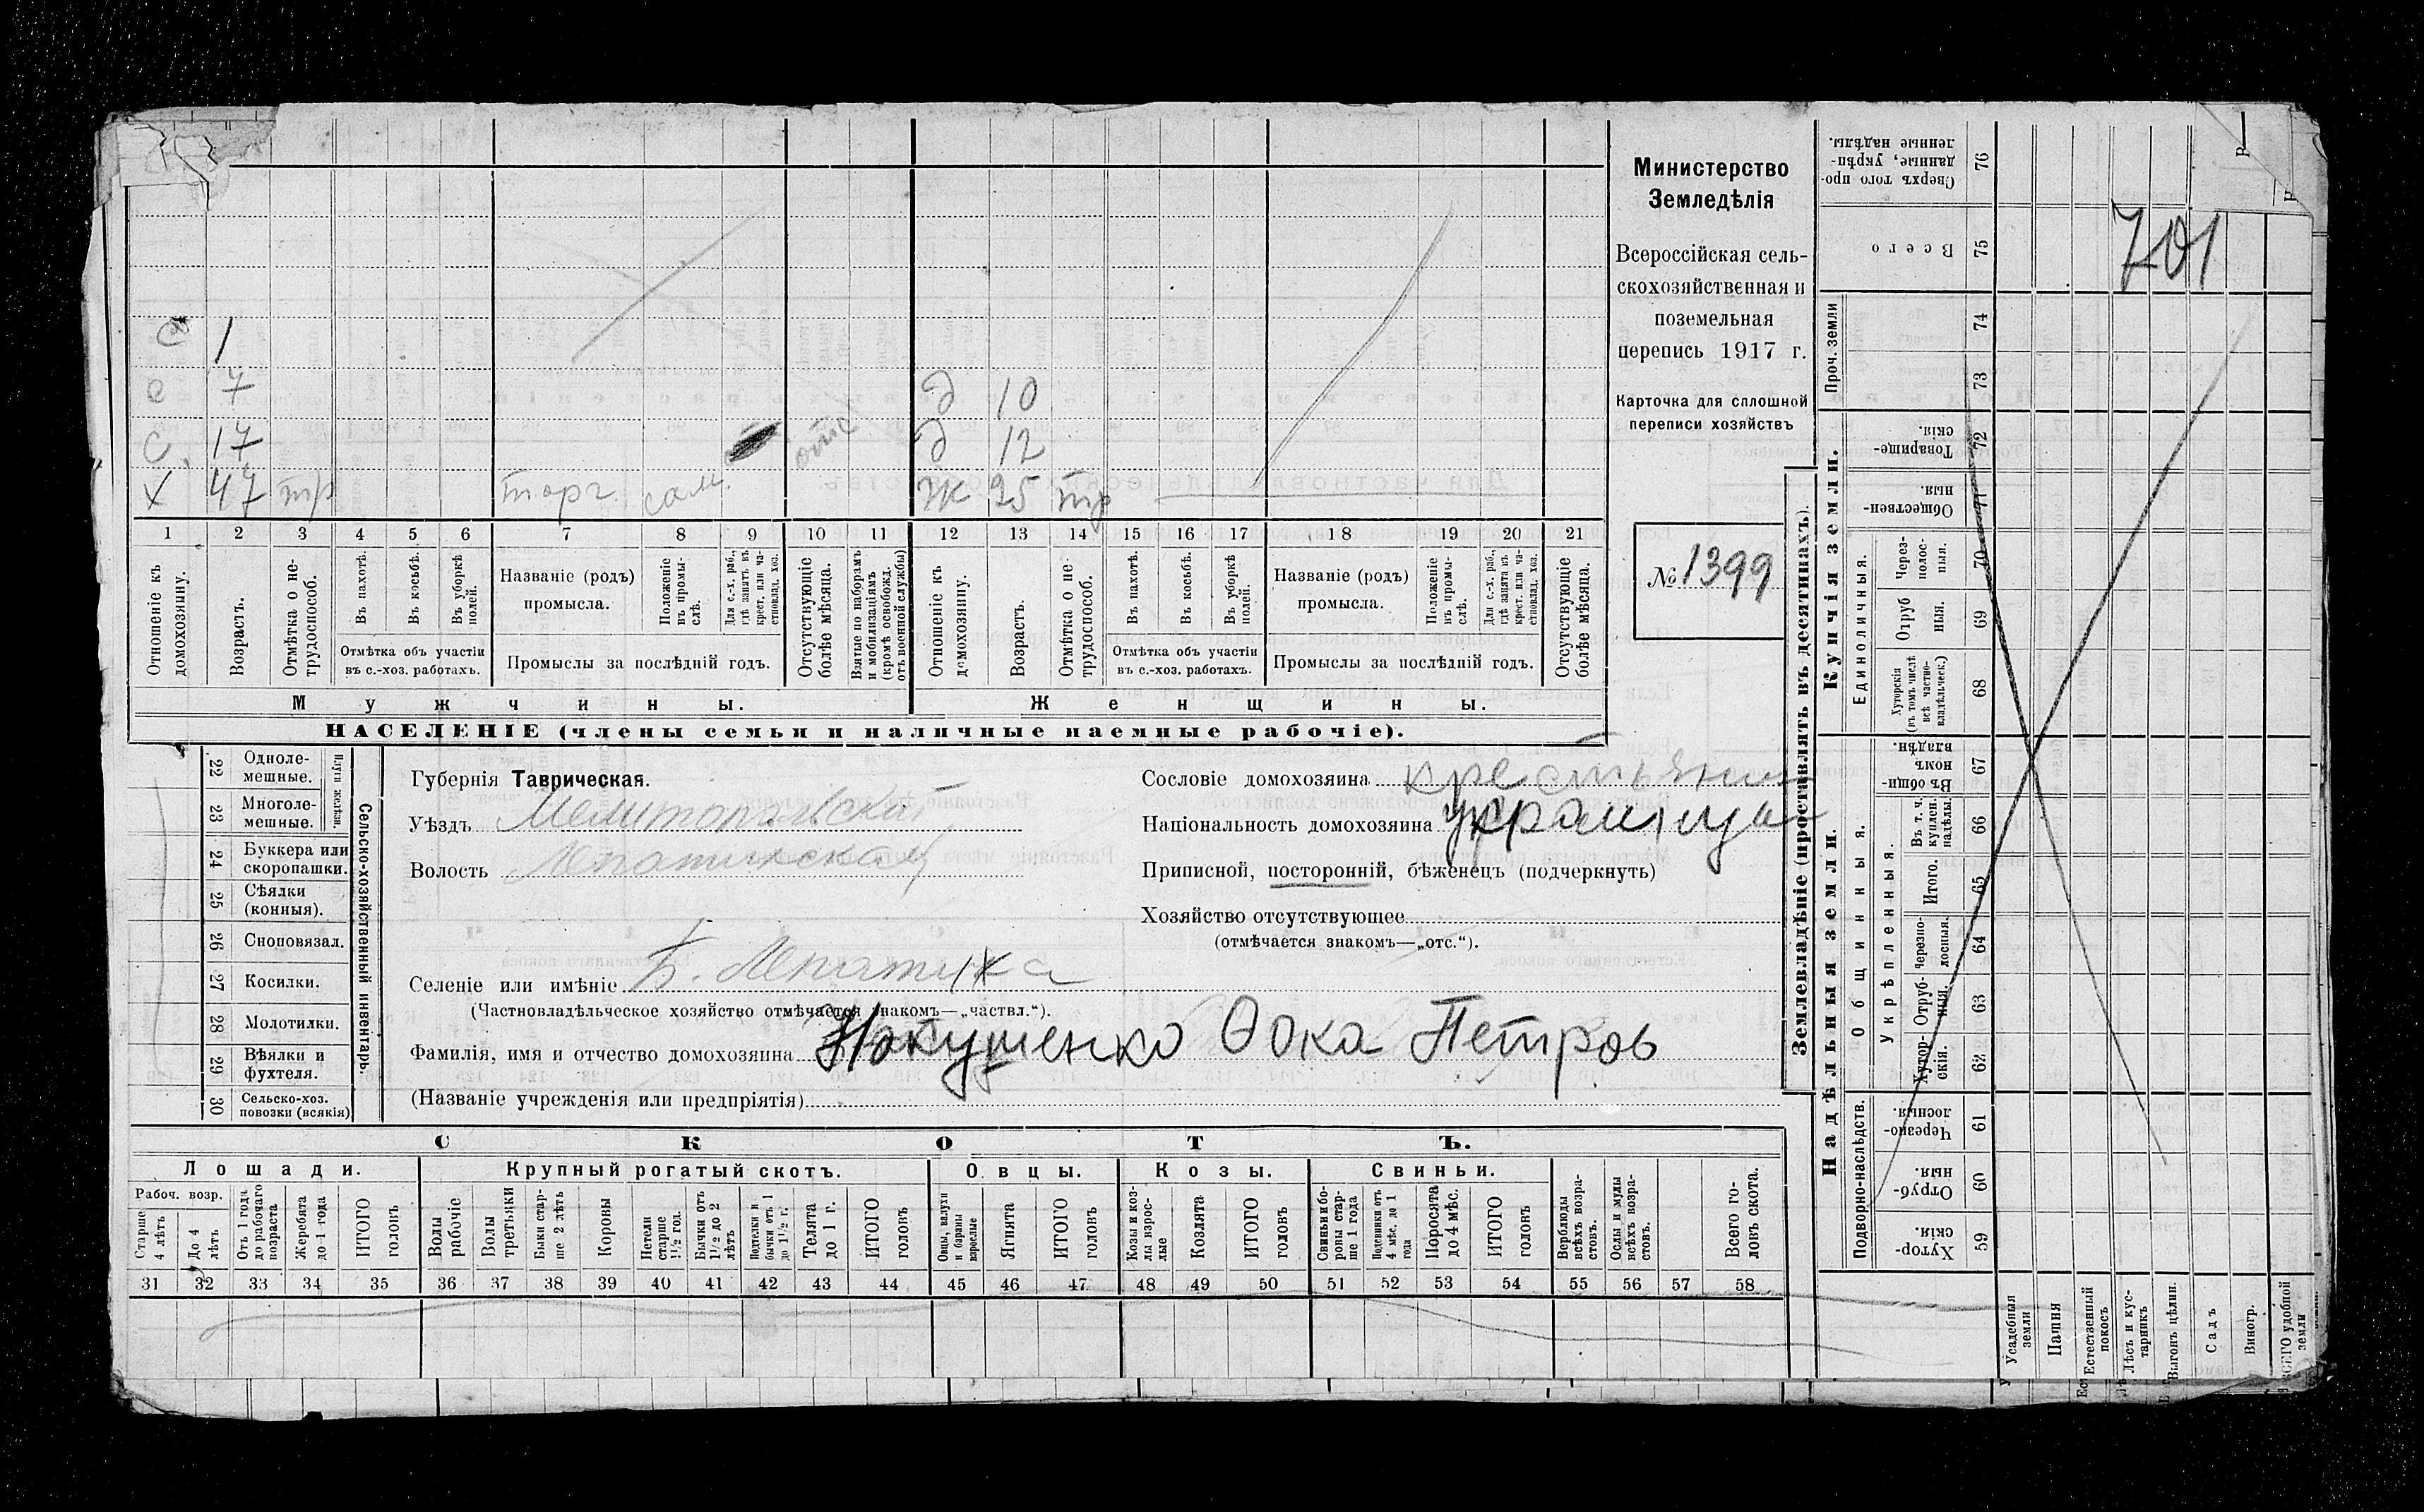 701
с 1
с 7 д 10
с 17 отс д 12
х 47 тр торг. сам. ж 35 тр
1 2 3 4 5 6 7 8 9 10 11 12 13 14 15 16 17 18 19 20 21
Отношеніе къ домохозяину.
Возрастъ.
Отмѣтка о нетрудоспособ.
Въ пахотѣ.
Въ косьбѣ.
Въ уборкѣ полей.
Отмѣтка объ участіи въ с.-хоз. работахъ.
Названіе (родъ) промысла.
Положеніе въ промыслѣ.
Для с.-х. раб., гдѣ занятъ въ крест. или частновлад. хоз.
Промыслы за послѣдній годъ.
Отсутствующіе болѣе мѣсяца.
Взятые по наборамъ и мобилизаціямъ (кромѣ освобожд. отъ военной службы)
Отношеніе къ домохозяину.
Возрастъ.
Отмѣтка о нетрудоспособ.
Въ пахотѣ.
Въ косьбѣ.
Въ уборкѣ полей.
Отмѣтка объ участіи въ с.-хоз. работахъ.
Названіе (родъ) промысла.
Положеніе въ промыслѣ.
Для с.-х. раб., гдѣ занята въ крест. или частновлад. хоз.
Промыслы за послѣдній годъ.
Отсутствующіе болѣе мѣсяца.
Мужчины. Женщины.
НАСЕЛЕНІЕ (члены семьи и наличные наемные рабочіе).
Министерство
Земледѣлія
Всероссійская сель-
скохозяйственная и
поземельная
перепись 1917 г.
Карточка для сплошной
переписи хозяйствъ
№ 1399
Сельско-хозяйственный инвентарь.
Плуги желѣзн.
22 Одноле-
мешные.
23 Многоле-
мешные.
24 Буккера или
скоропашки.
25 Сѣялки
(конныя).
26 Сноповязал.
27 Косилки.
28 Молотилки.
29 Вѣялки и
фухтеля.
30 Сельско-хоз.
повозки (всякія)
Губернія Таврическая.
Уѣздъ Мелитопольскій
Волость Лепатихская
Селеніе или имѣніе Б. Лепатиха
(Частновладѣльческое хозяйство отмѣчается знакомъ—„частвл.“).
Фамилія, имя и отчество домохозяина Нокушенко Фока Петров
(Названіе учрежденія или предпріятія)
Сословіе домохозяина крестьянин
Національность домохозяина украинцы
Приписной, посторонній, бѣженецъ (подчеркнуть)
Хозяйство отсутствующее
(отмѣчается знакомъ—„отс.“).
СКОТЪ.
Лошади. Крупный рогатый скотъ. Овцы. Козы. Свиньи.
Рабоч. возр.
Старше 4 лѣтъ
До 4 лѣтъ
Отъ 1 года до рабочаго возраста
Жеребята до 1 года
ИТОГО головъ
Волы рабочіе
Волы третьяки
Быки старше 2 лѣтъ
Коровы
Нетели старше 1½ год.
Бычки отъ 1½ до 2 лѣтъ
Подтелки и бычки отъ 1 до 1½ г.
Телята до 1 г.
ИТОГО головъ
Овцы, валухи и бараны взрослые
Ягнята
ИТОГО головъ
Козы и козлы взрослые
Козлята
ИТОГО головъ
Свиньи и боровы старше 1 года
Подсвинки отъ 4 мѣс. до 1 года
Поросята до 4 мѣс.
ИТОГО головъ
Верблюды всѣхъ возрастовъ.
Ослы и мулы всѣхъ возрастовъ.
Всего головъ скота.
31 32 33 34 35 36 37 38 39 40 41 42 43 44 45 46 47 48 49 50 51 52 53 54 55 56 57 58
Землевладѣніе (проставлять въ десятинахъ).
Купчія земли.
Надѣльныя земли.
Сверхъ того проданные, укрѣпленные надѣлы. 76
Всего 75
Проч. земли 74
73
Товарищескія. 72
Общественныя. 71
Единоличныя.
Черезполосныя. 70
Отрубныя. 69
Хуторскія (въ томъ числѣ всѣ частновладѣльческ.) 68
Общинныя.
Въ общинномъ владѣн. 67
Укрѣпленныя.
Въ т. ч. куплен. надѣлы. 66
Итого. 65
Черезполосныя. 64
Отрубныя. 63
Хуторскія. 62
Подворно-наслѣдств.
Черезполосныя. 61
Отрубныя. 60
Хуторскія. 59
Усадебныя земли
Пашня
Естественный покосъ
Лѣсъ и кустарникъ
Выгонъ цѣлин.
Садъ
Виногр.
ВСЕГО удобной земли